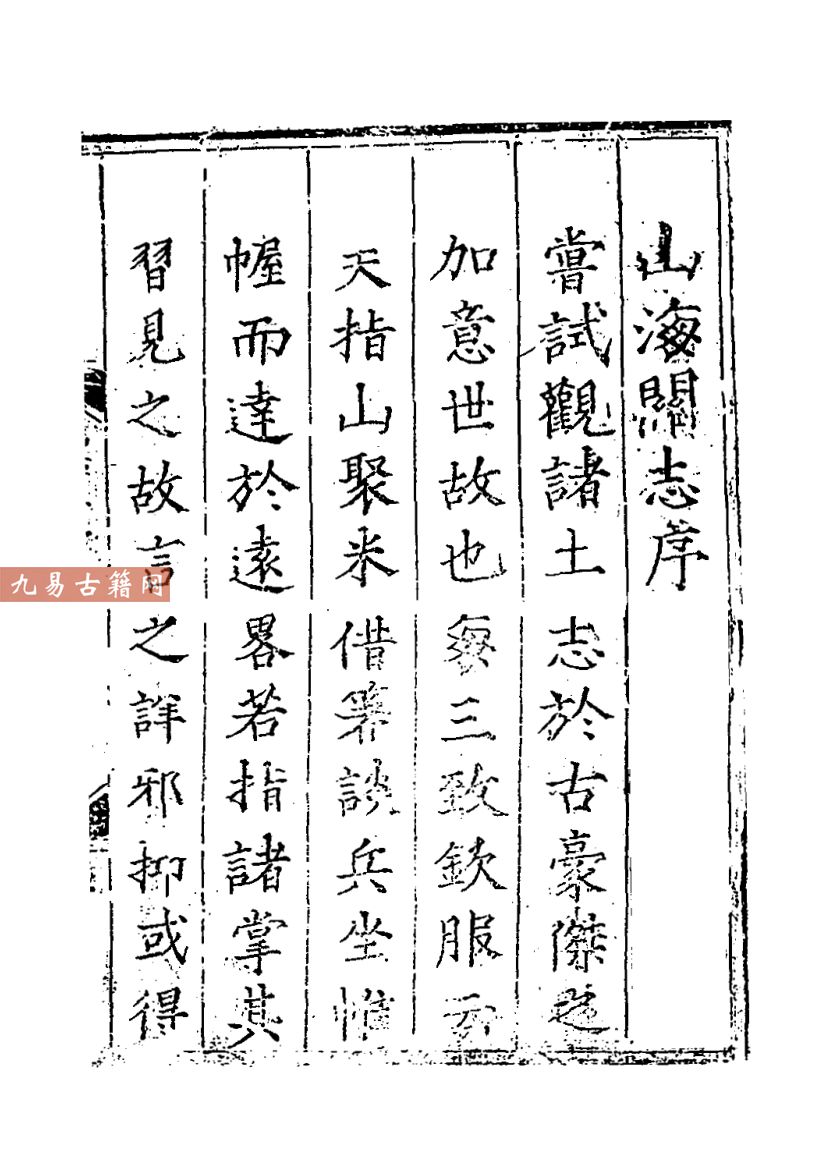 山海關志序
嘗試觀諸土志於古豪傑之
加意世故也每三致欽服云
天指山聚米借箸談兵坐帷
幄而達於遠畧若指諸掌其
習見之故言之詳邪抑或得
九易古籍网